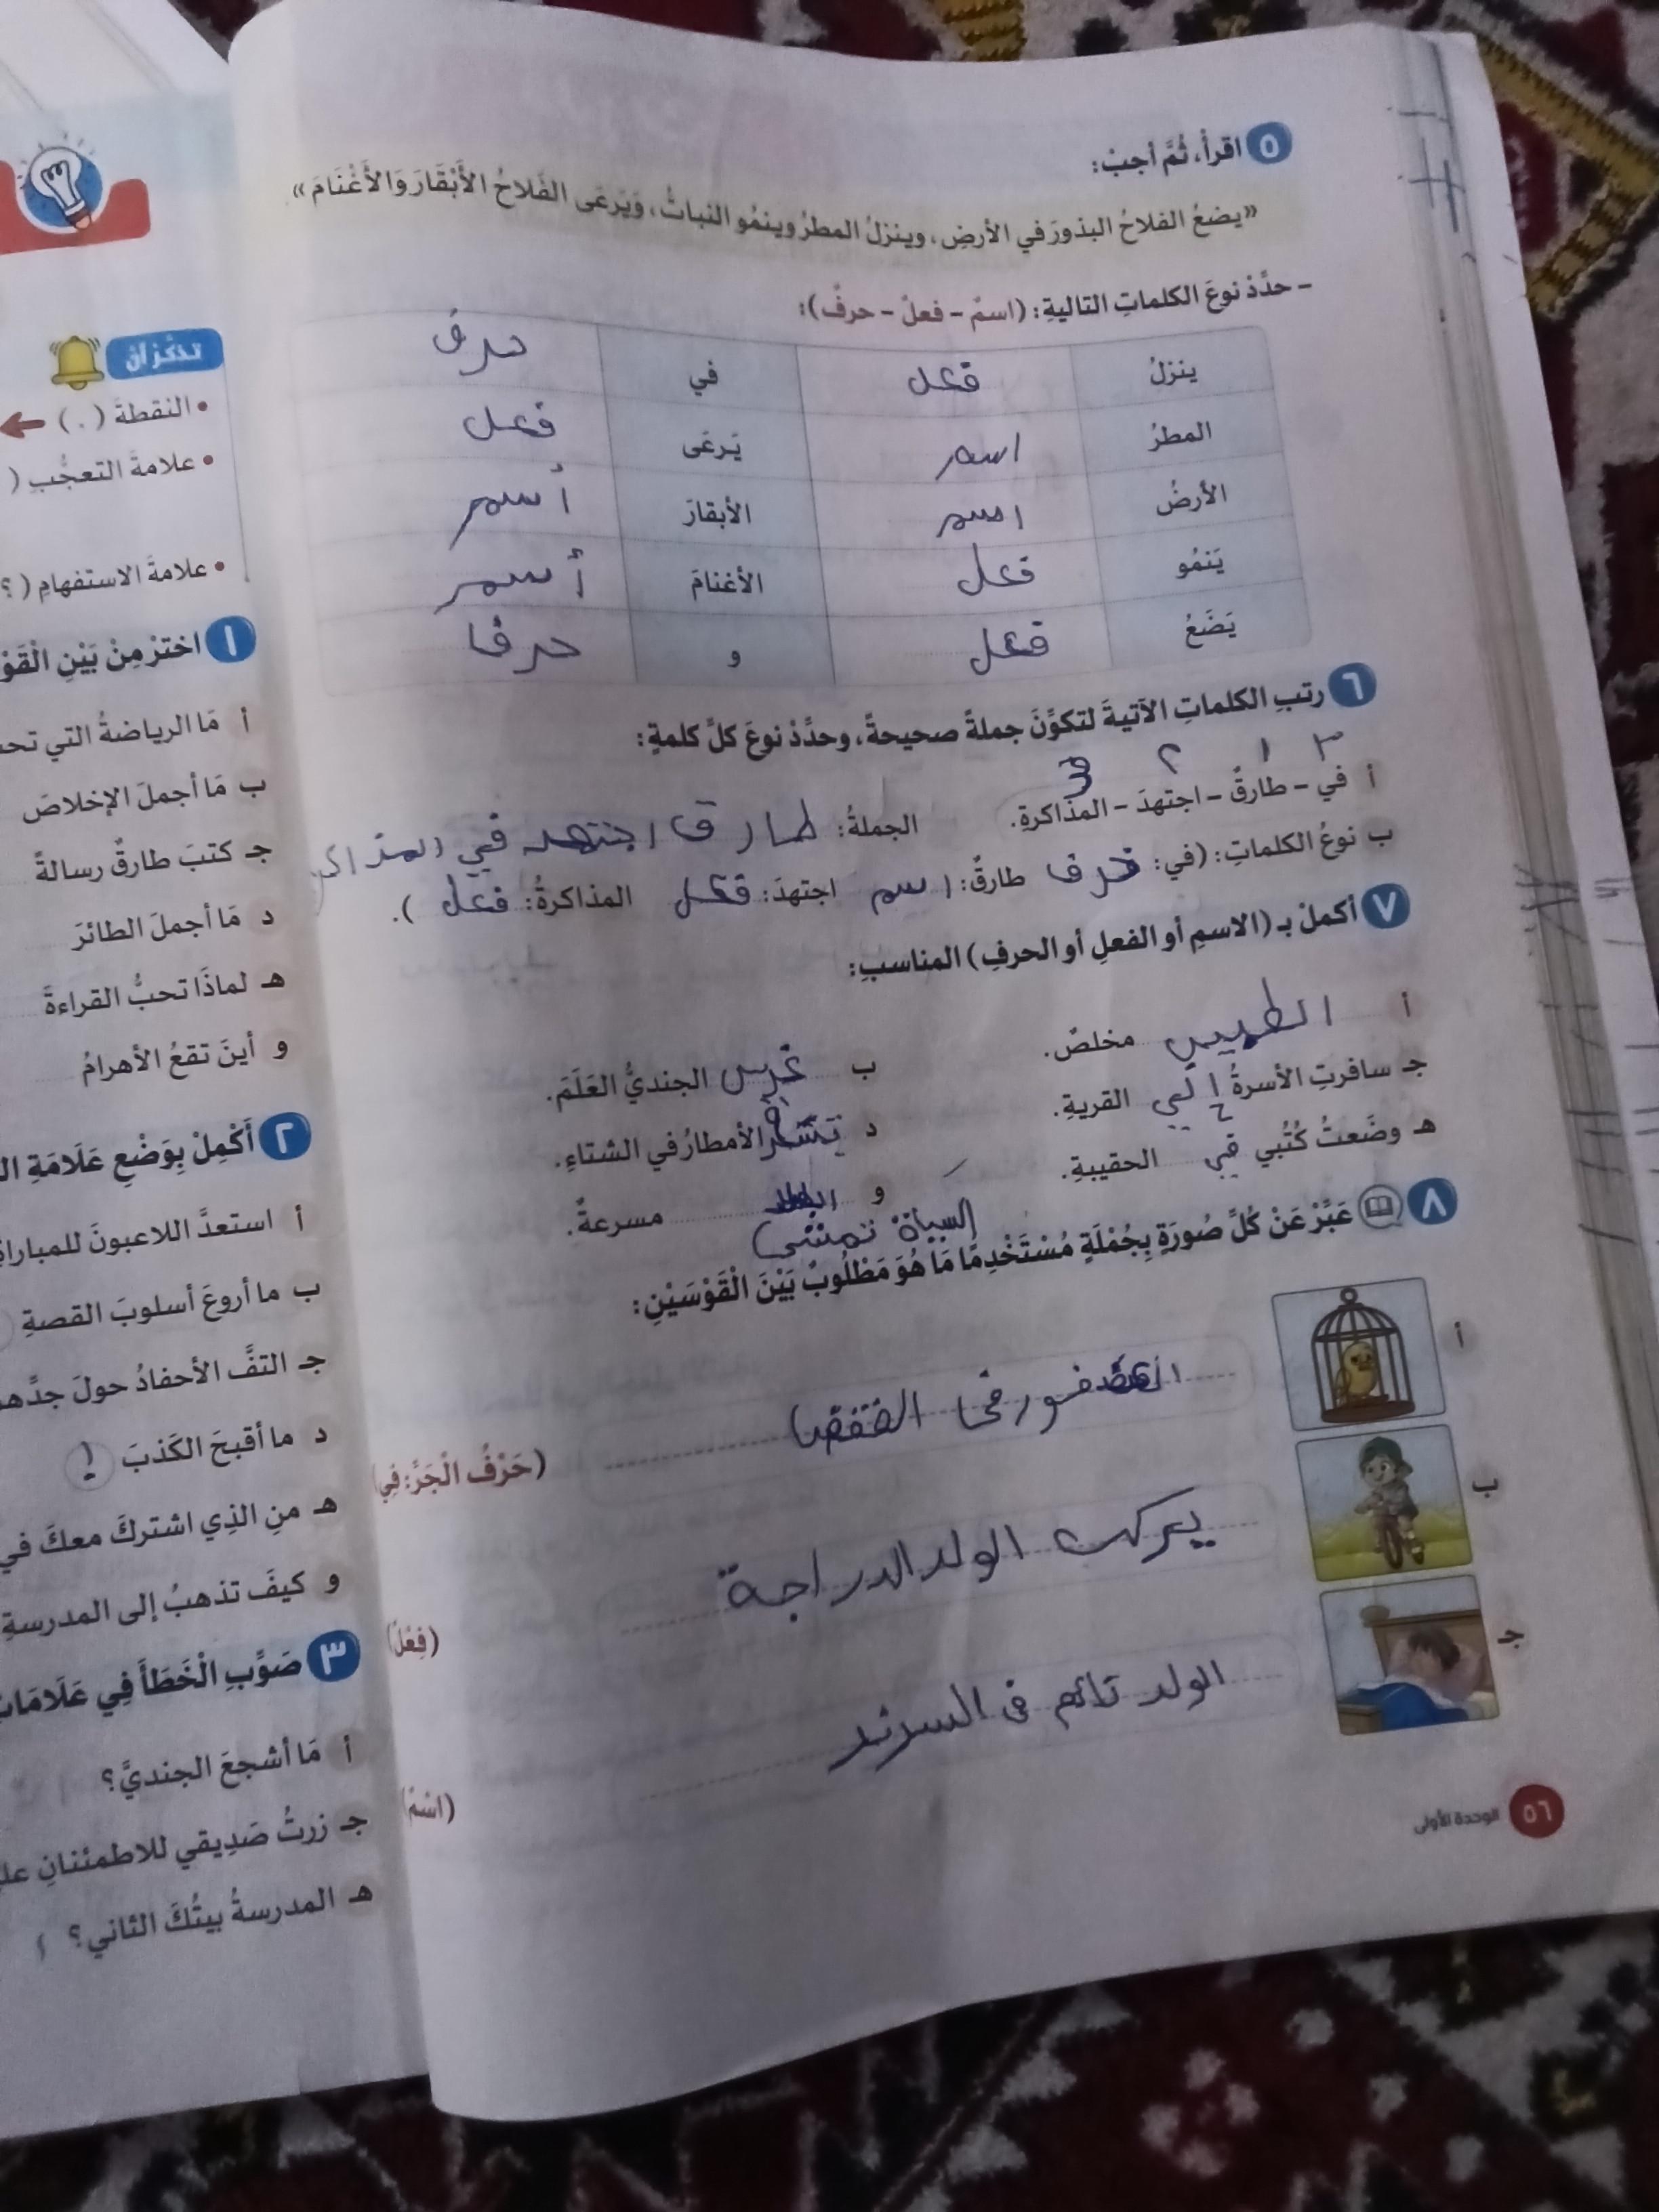 ٥ اقرأ، ثُمَّ أجبْ:
«يضعُ الفلاحُ البذورَ في الأرضِ، وينزلُ المطرُ وينمُو النباتُ، وَيَرعَى الفَلاحُ الأَبْقَارَ وَالأَغْنَامَ»
- حدِّدْ نوعَ الكلماتِ التاليةِ: (اسمٌ - فعلٌ - حرفٌ):
ينزلُ فعل في حرف
المطرُ اسم يَرعَى فعل
الأرضُ اسم الأبقارَ أسم
يَنمُو فعل الأغنامَ أسم
يَضَعُ فعل و حرفا
٦ رتبِ الكلماتِ الآتيةَ لتكوِّنَ جملةً صحيحةً، وحدِّدْ نوعَ كلِّ كلمةٍ:
٣ ١ ٢ 3
أ في - طارقٌ - اجتهدَ - المذاكرةِ. الجملةُ: طارق اجتهد في المذاكر
ب نوعُ الكلماتِ: (في: حرف طارقٌ: اسم اجتهدَ: فعل المذاكرةُ: فعل ).
٧ أكملْ بـ (الاسمِ أو الفعلِ أو الحرفِ) المناسبِ:
أ الطبيب مخلصٌ.
ب غرس الجنديُّ العَلَمَ.
جـ سافرتِ الأسرةُ الى القريةِ.
د الأمطارُ في الشتاءِ.
هـ وضَعتُ كُتُبي في الحقيبةِ.
و مسرعةٌ.
تمشي)
٨ عَبِّرْ عَنْ كُلِّ صُورَةٍ بِجُمْلَةٍ مُسْتَخْدِمًا مَا هُوَ مَطْلُوبٌ بَيْنَ الْقَوْسَيْنِ:
أ العصفور فى القفص
(حَرْفُ الْجَرِّ: فِي)
ب يركب الولد الدراجة
(فِعْلٌ)
جـ الولد نائم فى السرير
(اسْمٌ)
٥٦ الوحدة الأولى
تذكَّرْ أن
• النقطةَ (.)
• علامةَ التعجُّبِ (
• علامةَ الاستفهامِ (؟
١ اخترْ مِنْ بَيْنِ الْقَوْ
أ مَا الرياضةُ التي تحـ
ب مَا أجملَ الإخلاصَ
جـ كتبَ طارقٌ رسالةً
د مَا أجملَ الطائرَ
هـ لماذَا تحبُّ القراءةَ
و أينَ تقعُ الأهرامُ
٢ أَكْمِلْ بِوَضْعِ عَلَامَةِ الـ
أ استعدَّ اللاعبونَ للمباراةِ
ب ما أروعَ أسلوبَ القصةِ
جـ التفَّ الأحفادُ حولَ جدِّهـ
د ما أقبحَ الكَذبَ !
هـ منِ الذِي اشتركَ معكَ في
و كيفَ تذهبُ إلى المدرسةِ
٣ صَوِّبِ الْخَطَأَ فِي عَلَامَاتِ
أ مَا أشجعَ الجنديَّ؟
جـ زرتُ صَدِيقي للاطمئنانِ عليـ
هـ المدرسةُ بيتُكَ الثاني؟